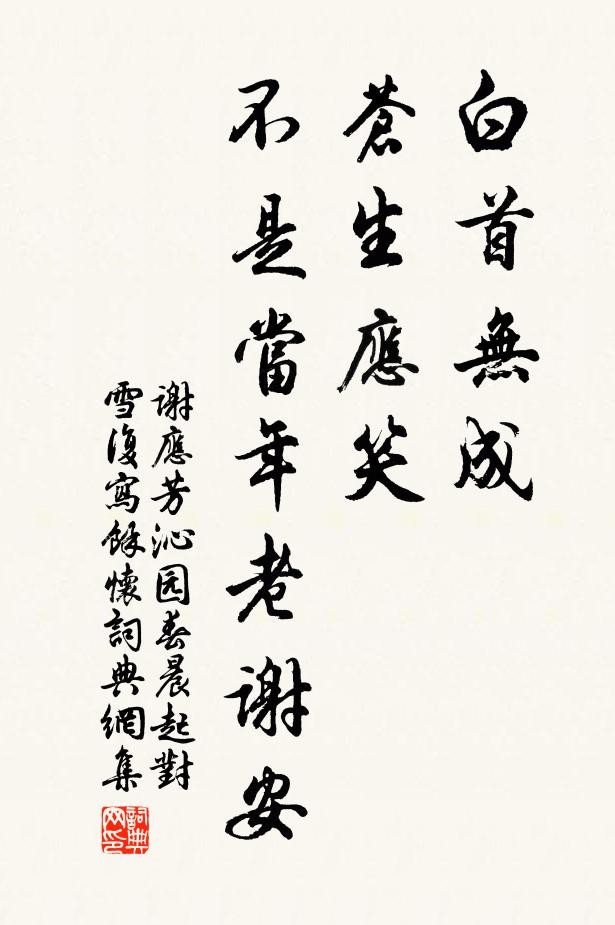 白首無成
蒼生應笑
不是當年老謝安
谢應芳沁园春晨起對
雪復寫餘懷詞典網集
詞典网印